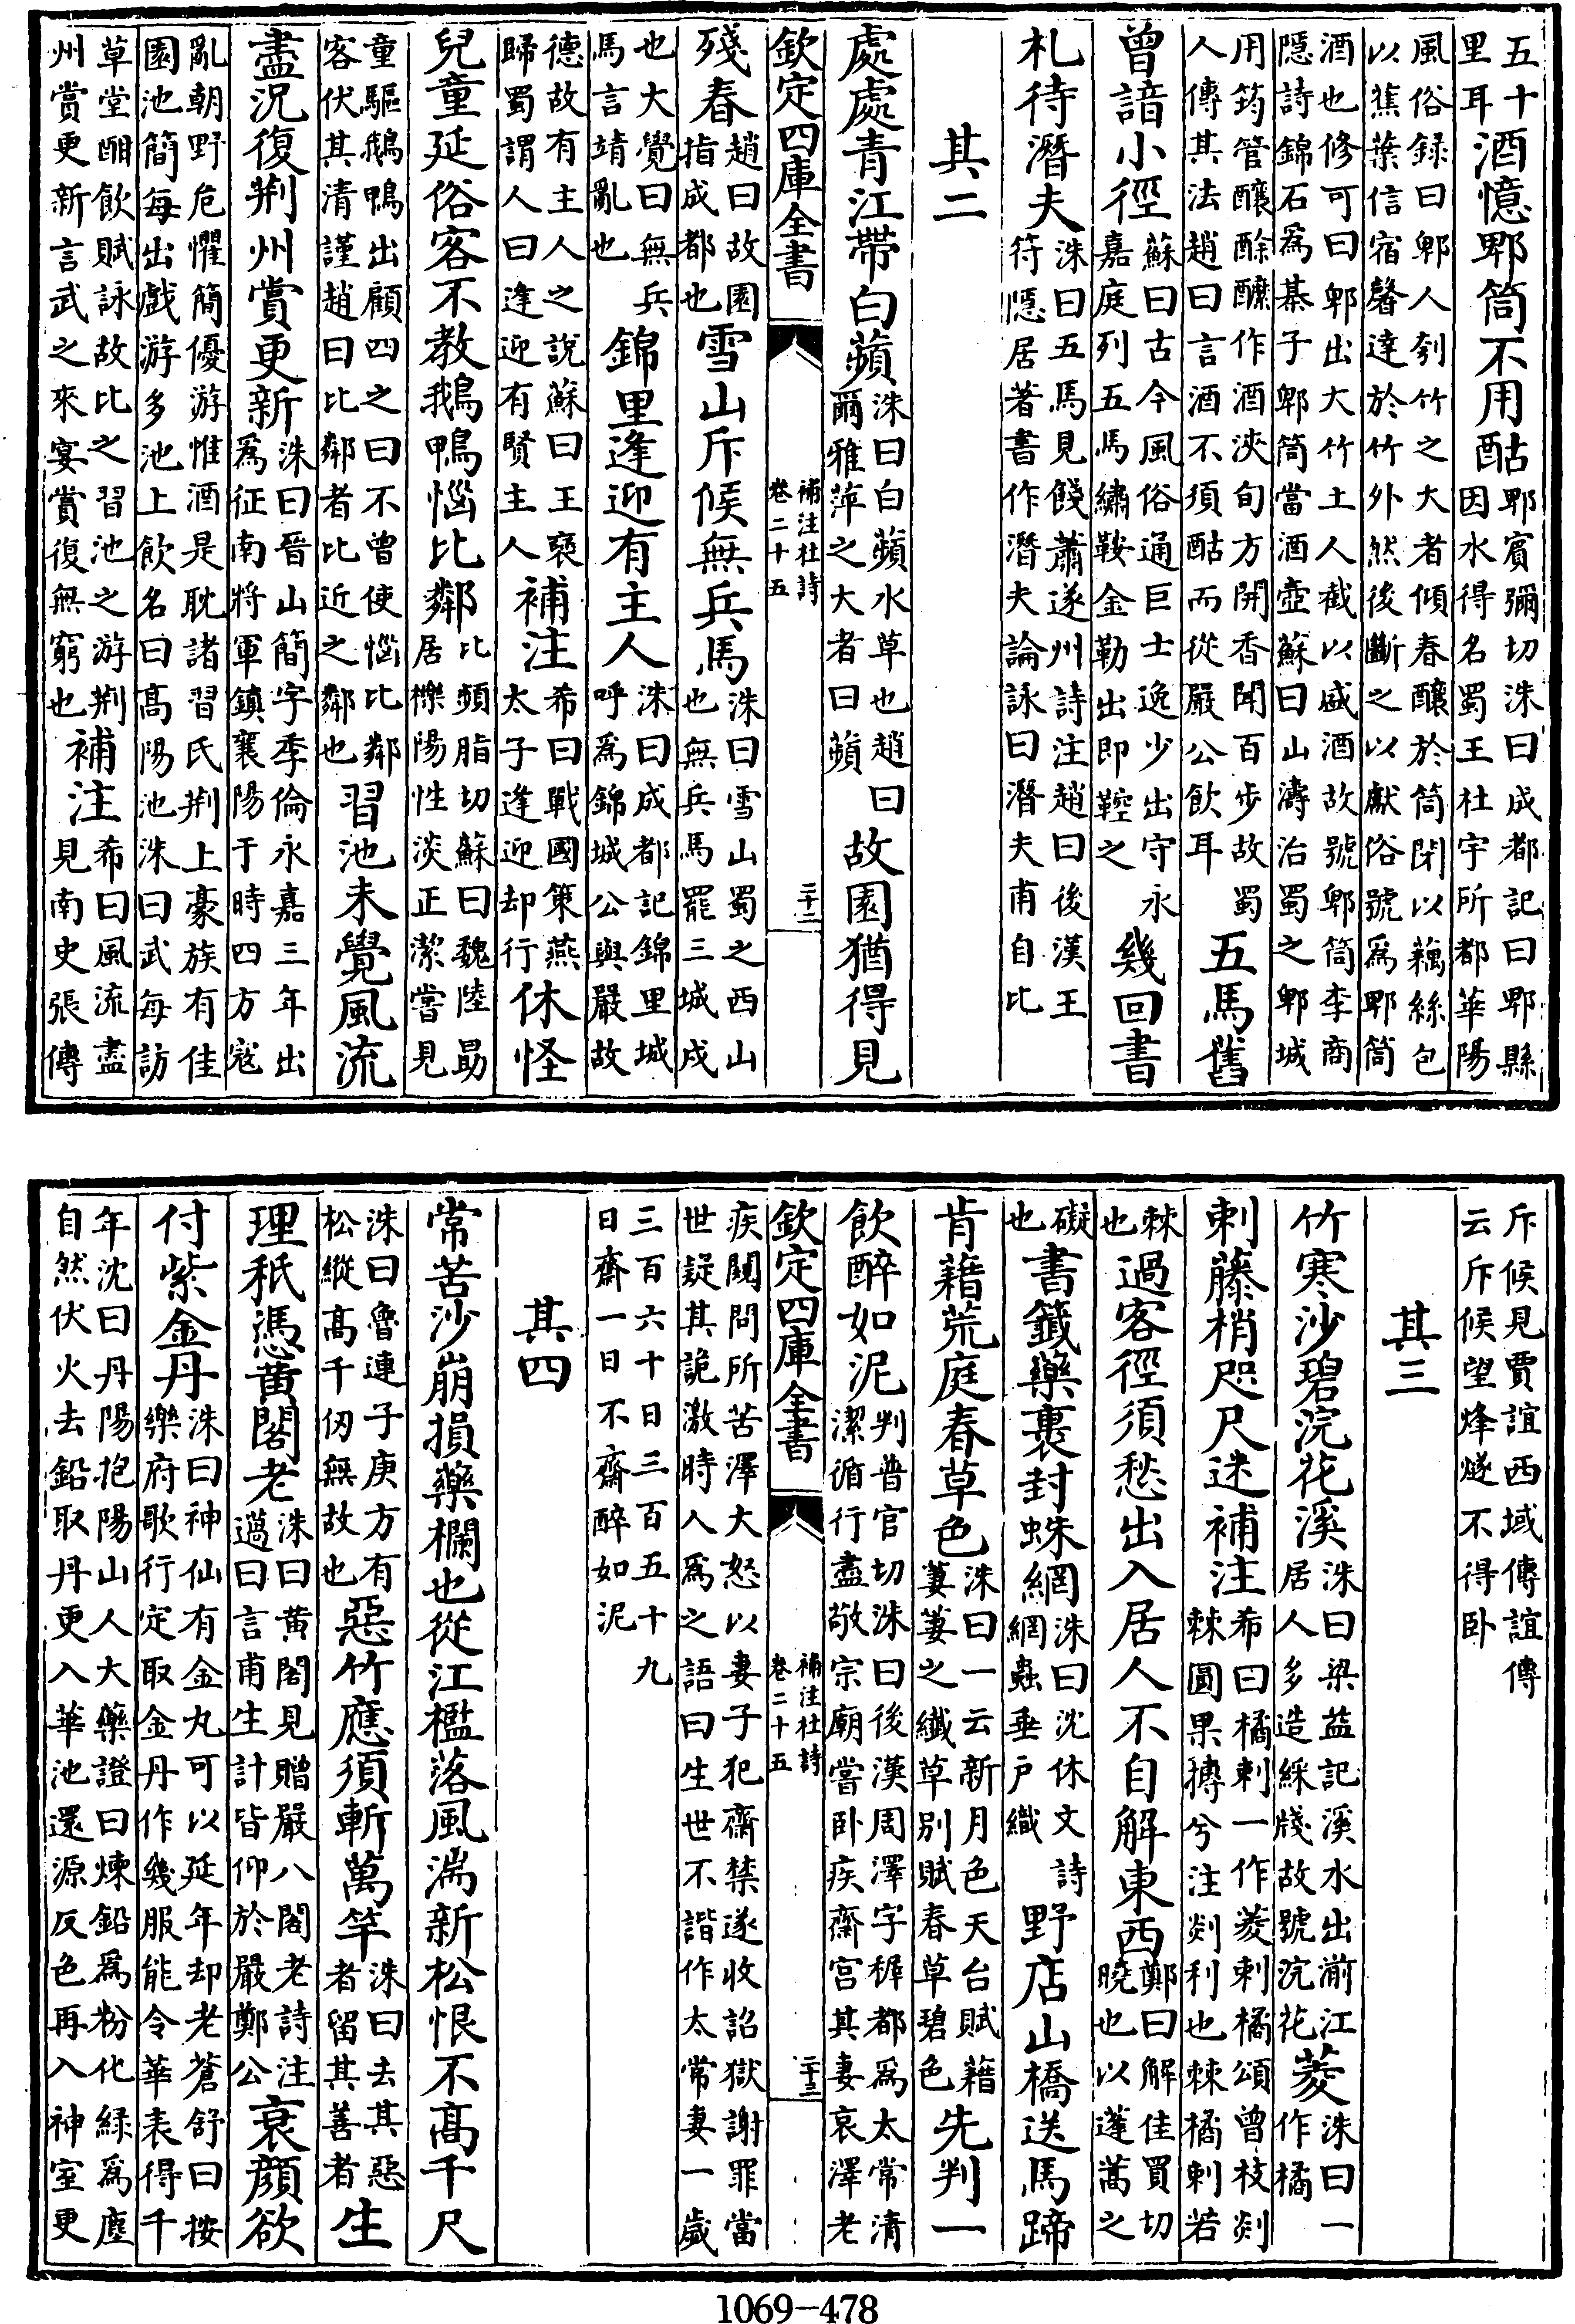 五十里耳酒憶郫筒不用酤郫賓彌切洙曰成都記曰郫縣因水得名蜀王杜宇所都華陽
風俗録曰郫人刳竹之大者傾春釀於筒閉以藕絲包以蕉葉信宿馨達於竹外然後斷之以獻俗號爲郫筒
酒也修可曰郫出大竹土人截以盛酒故號郫筒李商隱詩錦石爲棊子郫筒當酒壺蘇曰山濤治蜀之郫城
用筠管釀酴醿作酒浹旬方開香聞百步故蜀人傳其法趙曰言酒不須酤而從嚴公飲耳五馬舊
曾諳小徑蘇曰古今風俗通巨士逸少出守永嘉庭列五馬繡鞍金勒出即鞚之幾回書
札待潛夫洙曰五馬見餞蕭遂州詩注趙曰後漢王符隱居著書作潛夫論詠曰潛夫甫自比
其二
處處青江帶白蘋洙曰白蘋水草也趙曰爾雅萍之大者曰蘋故園猶得見
欽定四庫全書 補注杜詩 卷二十五 二十二
殘春趙曰故園指成都也雪山斥候無兵馬洙曰雪山蜀之西山也無兵馬罷三城戍
也大覺曰無兵馬言靖亂也錦里逢迎有主人洙曰成都記錦里城呼爲錦城公與嚴故
德故有主人之說蘇曰王褒歸蜀謂人曰逢迎有賢主人補注希曰戰國策燕太子逢迎却行休怪
兒童延俗客不教鵝鴨惱比鄰比頻脂切蘇曰魏陸勗居櫟陽性淡正潔嘗見
童驅鵝鴨出顧四之曰不曾使惱比鄰客伏其清謹趙曰比鄰者比近之鄰也習池未覺風流
盡況復荆州賞更新洙曰晉山簡字季倫永嘉三年出爲征南將軍鎮襄陽于時四方寇
亂朝野危懼簡優游惟酒是耽諸習氏荆上豪族有佳園池簡每出戲游多池上飲名曰高陽池洙曰武每訪
草堂酣飲賦詠故比之習池之游荆州賞更新言武之來宴賞復無窮也補注希曰風流盡見南史張傳
斥候見賈誼西域傳誼傳云斥候望烽燧不得卧
其三
竹寒沙碧浣花溪洙曰梁益記溪水出湔江居人多造綵牋故號浣花菱洙曰一作橘
刺藤梢咫尺迷補注希曰橘刺一作菱刺橘頌曾枝剡棘圓果摶兮注剡利也棘橘刺若
棘也過客徑須愁出入居人不自解東西鄭曰解佳買切曉也以蓬蒿之
礙也書籤藥裹封蛛網洙曰沈休文詩網蟲垂戶織野店山橋送馬蹄
肯藉荒庭春草色洙曰一云新月色天台賦藉萋萋之纖草别賦春草碧色先判一
飲醉如泥判普官切洙曰後漢周澤字穉都爲太常清潔循行盡敬宗廟嘗卧疾齋宮其妻哀澤老
欽定四庫全書 補注杜詩 卷二十五 二十三
疾闚問所苦澤大怒以妻子犯齋禁遂收詔獄謝罪當世疑其詭激時人爲之語曰生世不諧作太常妻一歲
三百六十日三百五十九日齋一日不齋醉如泥
其四
常苦沙崩損藥欄也從江檻落風湍新松恨不高千尺
洙曰魯連子庚方有松縱高千仞無故也惡竹應須斬萬竿洙曰去其惡者留其善者生
理秖憑黄閣老洙曰黄閣見贈嚴八閣老詩注薖曰言甫生計皆仰於嚴鄭公衰顔欲
付紫金丹洙曰神仙有金丸可以延年却老蒼舒曰按樂府歌行定取金丹作幾服能令華表得千
年沈曰丹陽抱陽山人大藥證曰煉鉛爲粉化緑爲塵自然伏火去鉛取丹更入華池還源反色再入神室更
1069-478